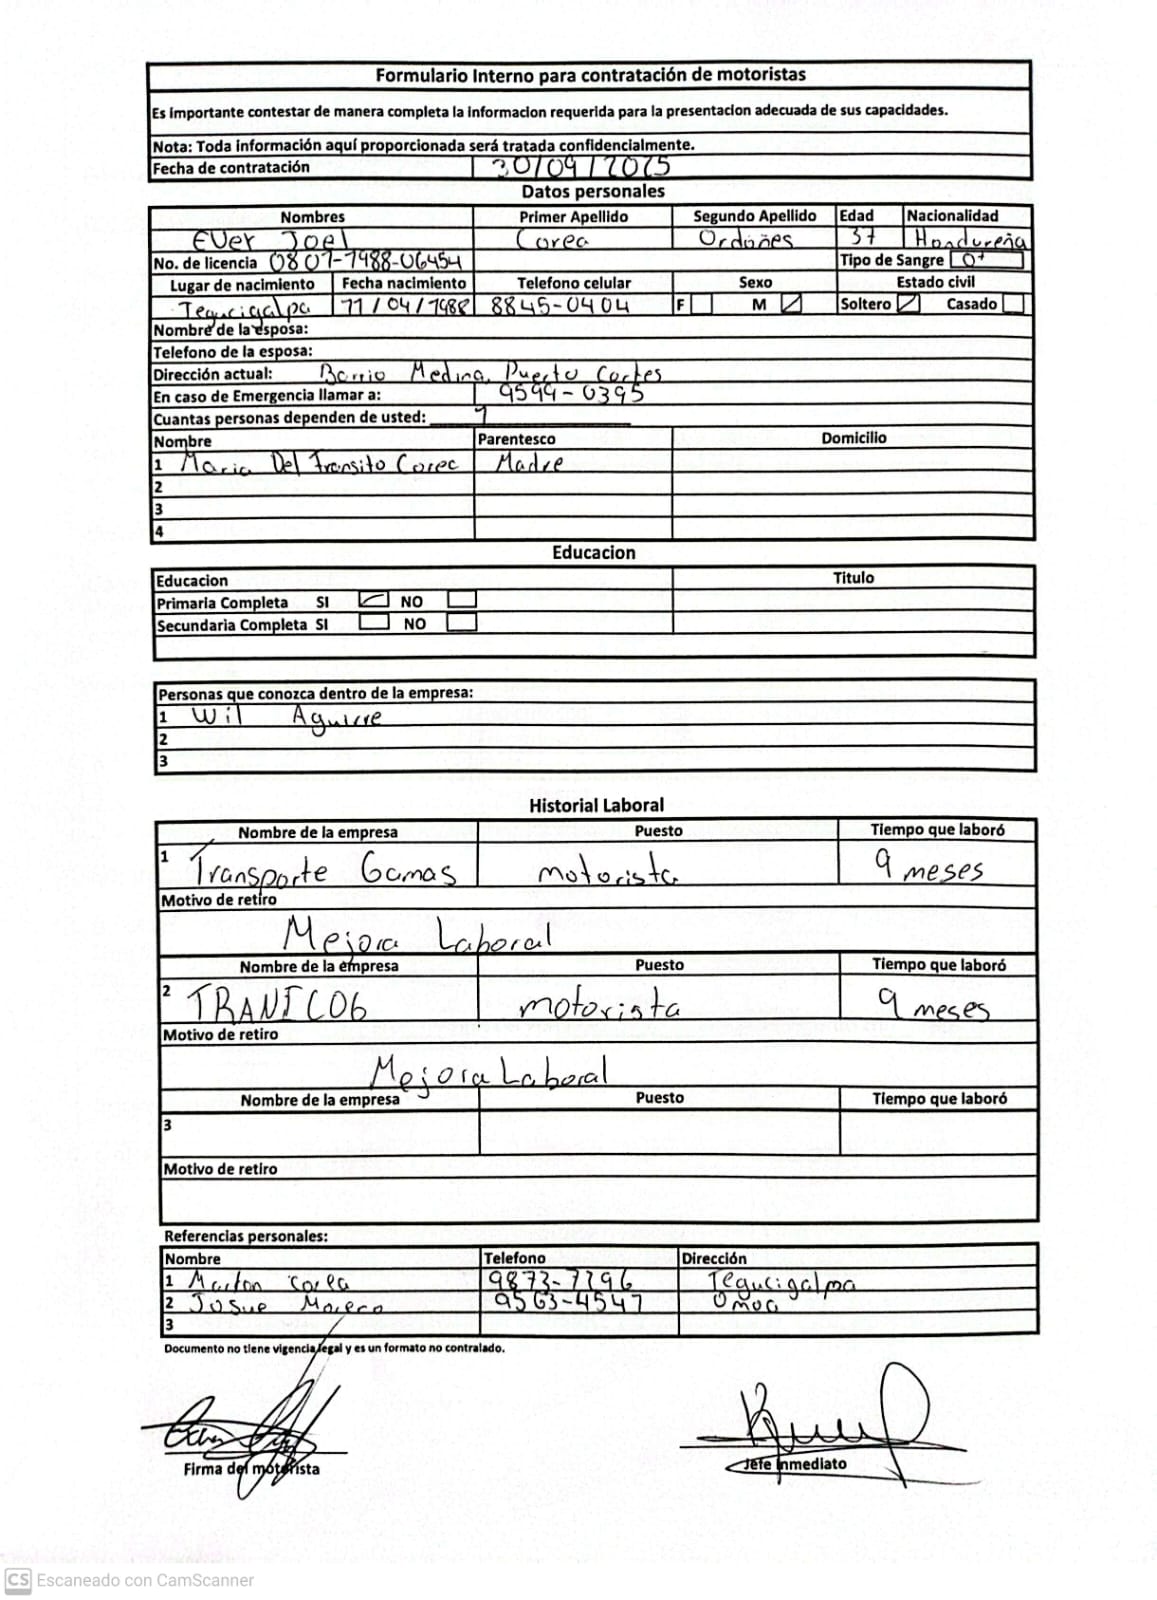 Formulario Interno para contratación de motoristas
Es importante contestar de manera completa la informacion requerida para la presentacion adecuada de sus capacidades.
Nota: Toda información aquí proporcionada será tratada confidencialmente.
Fecha de contratación 30/09/2025
Datos personales
Nombres Primer Apellido Segundo Apellido Edad Nacionalidad
Ever Joel Corea Ordoñes 37 Hondureña
No. de licencia 0801-1988-06454 Tipo de Sangre O+
Lugar de nacimiento Fecha nacimiento Telefono celular Sexo Estado civil
Tegucigalpa 11/04/1988 8845-0404 F M Soltero Casado
Nombre de la esposa:
Telefono de la esposa:
Dirección actual: Barrio Medina, Puerto Cortes
En caso de Emergencia llamar a: 9599-0395
Cuantas personas dependen de usted: 1
Nombre Parentesco Domicilio
1 Maria Del Transito Corea Madre
2
3
4
Educacion
Educacion Titulo
Primaria Completa SI NO
Secundaria Completa SI NO
Personas que conozca dentro de la empresa:
1 Wil Aguirre
2
3
Historial Laboral
Nombre de la empresa Puesto Tiempo que laboró
1 Transporte Gamas motorista 9 meses
Motivo de retiro
Mejora Laboral
Nombre de la empresa Puesto Tiempo que laboró
2 motorista 9 meses
Motivo de retiro
Mejora Laboral
Nombre de la empresa Puesto Tiempo que laboró
3
Motivo de retiro
Referencias personales:
Nombre Telefono Dirección
1 Marlon Corea 9873-7796 Tegucigalpa
2 Josue Moreno 9563-4547 Omoa
3
Documento no tiene vigencia legal y es un formato no contralado.
Firma del motorista Jefe Inmediato
CS Escaneado con CamScanner